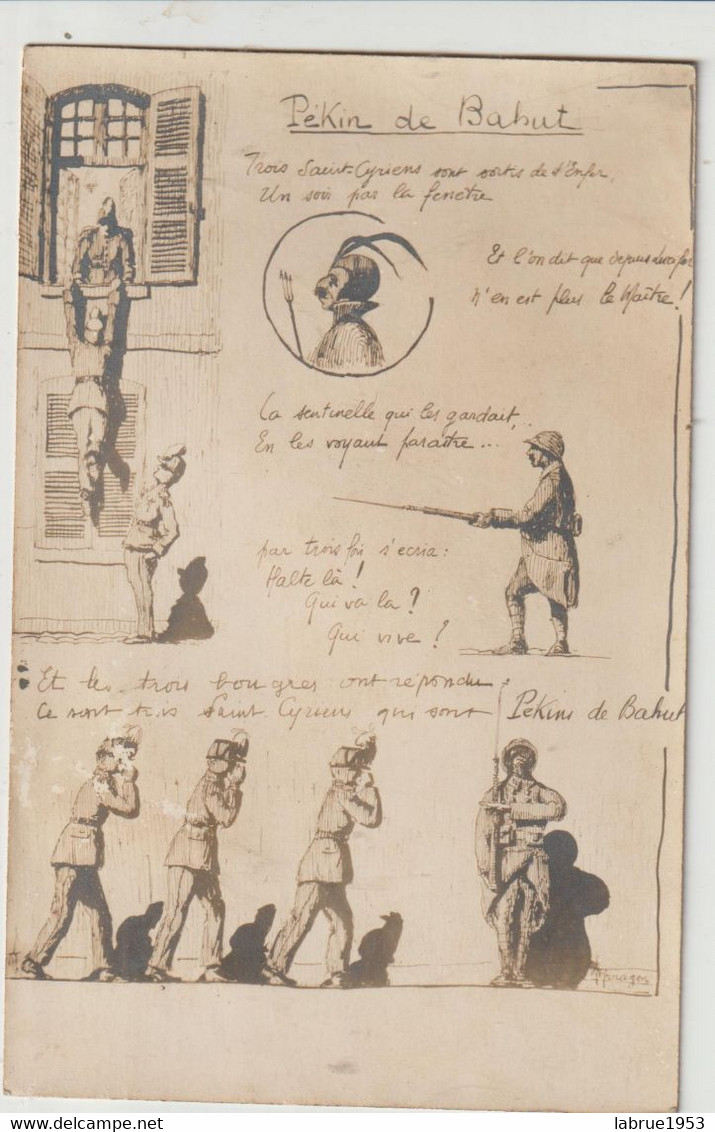 Pékin de Bahut
Trois Saint-Cyriens sont sortis de l'Enfer,
Un soir par la fenêtre
Et l'on dit que depuis
n'en est plus le Maître!
La sentinelle qui les gardait...
En les voyant paraître...
par trois fois s'écria:
Halte là!
Qui va la?
Qui vive?
Et les trois bougres ont répondu:
Ce sont trois Saint-Cyriens qui sont Pékins de Bahut
delcampe.net
labrue1953